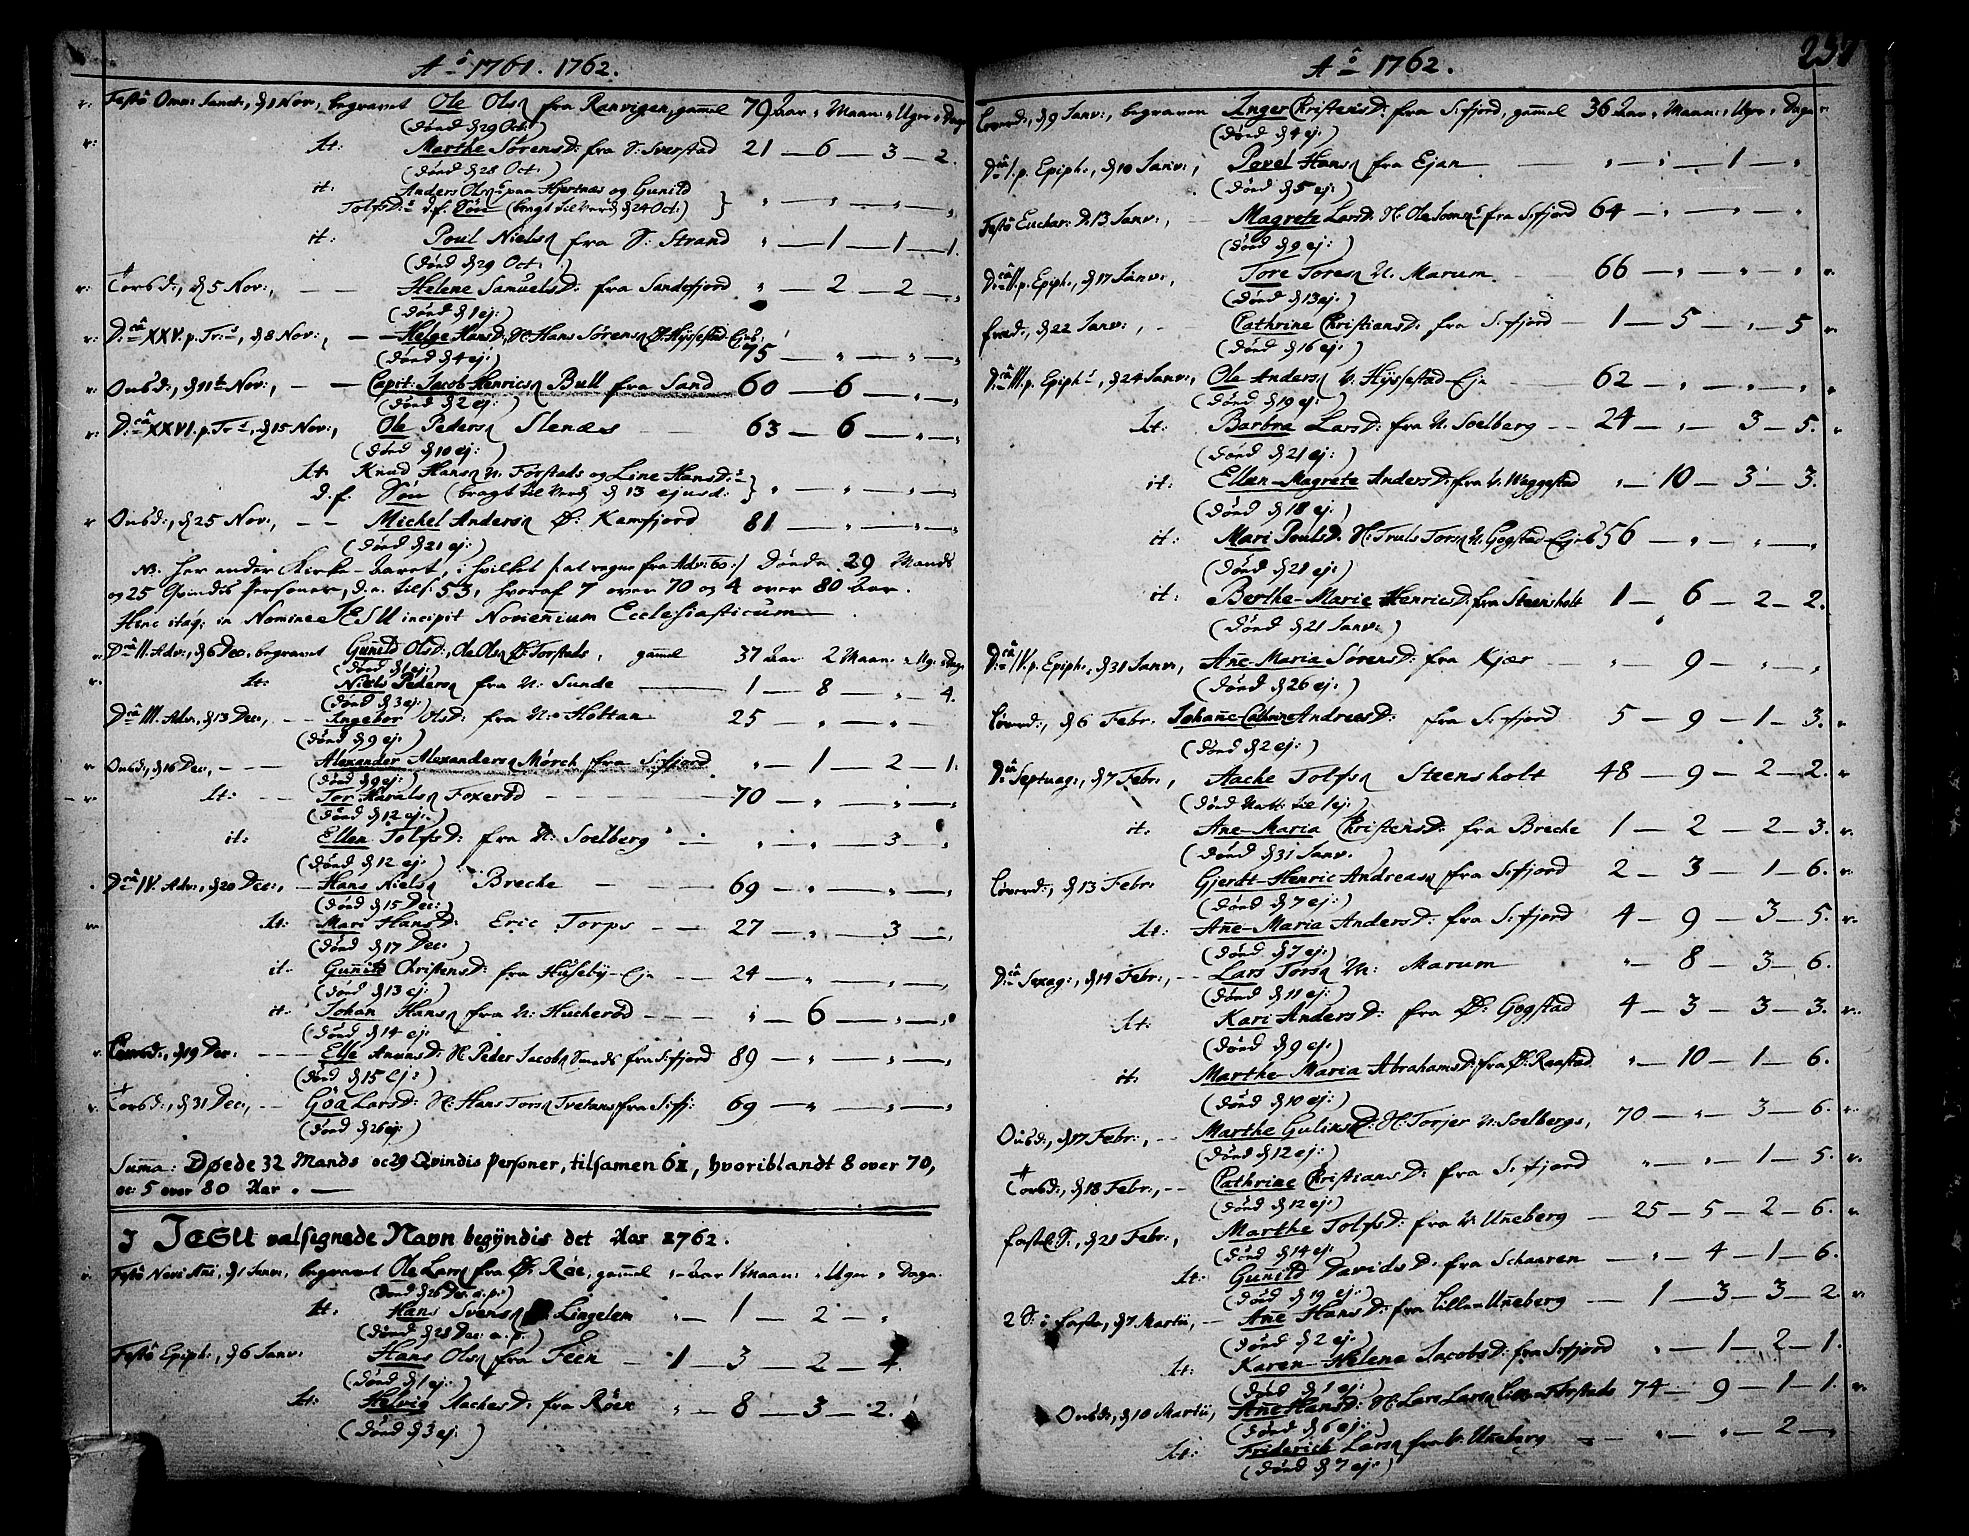 Aô 1761. 1762.
Festô Omn: Sanct:, d. 1 Nov, begravet Ole Ols. fra Ranvigen, gamel 79 Aar " Maan: " Uger " Dage
(død d. 29 Oct:)
It: Marthe SørensD: fra S: Sverstad 21 — 6 — 3 — 2.
(død d. 28 Oct:)
it: Anders Ols. paa Hjertnæs og Gunild
TolfsD: d.f. Søn (bragt til Verd. d. 24 Oct:) " — " — " — "
it: Poul Niels. fra S: Strand " — 1 — 1 — 1.
(død d. 29 Oct:)
Torsd:, d. 5 Nov:, — — Helene SamuelsD: fra Sandefjord " — 2 — 2 — "
(død d. 1 ej:)
D:câ XXV. p. Tr:, d. 8 Nov:, — Helge HansD: H: Hans Sørens. Ø: Hÿssestad-Eje
75 — " — " — "
(død d. 4 ej:)
Onsd:, d. 11te Nov:, — — Capit: Jacob Henrics. Bull fra Sand 60 — 6 — " — "
(død d. 2 ej:)
D:câ XXVI. p. Tr:, d. 15 Nov:, Ole Peders. Slenæs 63 — 6 — " — "
(død d. 10 ej:)
It: Knud Hans. N: Forstads og Line HansD:
d.f. Søn (bragt til Verd. d. 13 ejusd: " — " — " — "
Onsd:, d. 25 Nov:, — — Michel Anders. Ø: Kamfjord 81 — " — " — "
(død d. 21 ej:)
NB. Her ender Kirke-Aaret, i hvilket (: at regne fra Adv: 60 :) Døde 29 Mands
og 25 Qvindis Personer, d.e. tils: 53, hvoraf 7 over 70 og 4 over 80 Aar.
Hinc itaq; in Nomine JESU incipit Noviennium Ecclesiasticum.
D:câ II. Adv:, d. 6 Dec, begravet Gunild OlsD:, Ole Ols. Ø: Torstads, gamel 37 Aar 2 Maan: " Ug: " Dage
(død d. 1 ej:)
It: Niels Peders. fra N: Sunde 1 — 8 — " — 4.
(død d. 3 ej:)
D:câ III. Adv:, d. 13 Dec, — Ingebor OlsD: fra N: Holtan 25 — " — " — "
(død d. 9 ej:)
Onsd:, d. 16 Dec, — — Alexander Alexanders. Mørch fra S:fjord " — 1 — 2 — 1.
(død d. 9 ej:)
It: — — Tor Haralds. Foxerød 70 — " — " — "
(død d. 12 ej:)
it: Ellen TolfsD: fra N: Soelberg " — " — 3 — "
(død d. 12 ej:)
D:câ IV. Adv:, d. 20 Dec:, — Hans Niels. Breche 69 — " — " — "
(død d. 15 Dec:)
It: Mari HansD: Eric Torps 27 — " — 3 — "
(død d. 17 Dec)
it: Gunild ChristensD: fra Husebÿ-Eje 24 — " — " — "
(død d. 13 ej:)
it: Johan Hans. fra N: Hucherød " — 6 — " — "
(død d. 14 ej:)
d. 19 Dec: — — Else AnunsD: H: Peder Jacobs. fra S:fjord 89 — " — " — "
(død d. 15 ej:)
Torsd:, d. 31 Dec:, — Goa LarsD: H: Hans Tors. Tvetans fra S:fj: 69 — " — " — "
(død d. 26 ej:)
Summa: Døede 32 Mands oc 29 Qvindis Personer, tilsamen 61, hvoriblandt 8 over 70,
oc 5 over 80 Aar. —
I JESU velsignede Navn begÿndis det Aar 1762.
Festô Novi Ani, d. 1 Janv:, begravet Ole Lars. fra Ø: Røe, gamel " Aar 1 Maan: " Uger " Dage.
(død d. 26 Dec. a. p:)
It: Hans Svens. Lingelem " — 1 — 2 — "
(død d. 28 Dec: a. p.)
Festô Epiph:, d. 6 Janv: Hans Ols. fra Feen — 1 — 3 — 2 — 4.
(død d. 1 ej:)
It: Helvig AachesD: fra Røer " — 8 — 3 — 2.
(død d. 3 ej:)
Aô 1762.
Løverd:, d. 9 Janv:, begraven Inger ChristensD: fra S:fjord, gamel 36 Aar " Maan: " Uger " Dage
(død d. 4 ej:)
D:câ I. p. Epiph:, d. 10 Janv:, Povel Hans. fra Ejan " — " — 1 — "
(død d. 5 ej:)
Festô Euchar: d. 13 Janv:, — Magrete LarsD: H: Ole fra S:fjord 64 — " — " — "
(død d. 9 ej:)
D:câ II. p. Epiph:, d. 17 Janv:, Tore Tores. N: Marum 66 — " — " — "
(død d. 13 ej:)
fred:, d. 22 Janv:, — Cathrine ChristiansD: fra S:fjord — 1 — 5 — " — 5
(død d. 16 ej:)
D:câ III. p. Epiph:, d. 24 Janv:, Ole Anders. V. Hÿssestad-Eje 62 — " — " — "
(død d. 19 ej:)
It: Barbra LarsD: fra N: Soelberg — 24 — " — 3 — 5.
(død d. 21 ej:)
it: Ellen-Magrete AndersD: fra V: Weggestad " — 10 — 3 — 3.
(død d. 18 ej:)
it: Mari PoulsD: H: Truls Tors. N: Gogstad-Eje 56 — " — " — "
(død d. 21 ej:)
it: Berthe-Marie HenricsD: fra Steensholt 1 — 6 — 2 — 2.
(død d. 21 Janv:)
D:câ IV. p. Epiph:, d. 31 Janv:, Ane-Maria SørensD: fra Kjær — " — 9 — " — "
(død d. 26 ej:)
Løverd:, d. 6 Febr: Johane-Cathrine AndreasD: fra S:fjord 5 — 9 — 1 — 3.
(død d. 2 ej:)
D:câ Septuag:, d. 7 Febr:, Aache Tolfs. Steensholt 48 — 9 — 2 — 2.
(død Nat: til 1 ej:)
it: Ane-Maria ChristensD: fra Breche 1 — 2 — 2 — 3.
(død d. 31 Janv:)
Løverd:, d. 13 Febr: Gjerdt-Henric Andreas. fra S:fjord 2 — 3 — 1 — 6.
(død d. 7 ej:)
It: Ane-Maria AndersD: fra S:fjord 4 — 9 — 3 — 5.
(død d. 7 ej:)
D:câ Sexag:, d. 14 Febr:, — Lars Tors. N: Marum " — 8 — 3 — 6.
(død d. 11 ej:)
It: Kari AndersD: fra Ø: Gogstad 4 — 3 — 3 — 3.
(død d. 9 ej:)
it: Marthe-Maria AbrahamsD: fra Ø: Raastad " — 10 — 1 — 6.
(død d. 10 ej:)
Onsd:, d. 17 Febr:, — Marthe GulichsD: H: Torjer N: Soelbergs, 70 — " — 3 — 6.
(død d. 12 ej:)
Torsd:, d. 18 Febr:, — Cathrine ChristiansD: fra S:fjord " — " — 1 — 5.
(død d. 12 ej:)
fastel: S:, d. 21 Febr:, Marthe TolfsD: fra V: Uneberg — 25 — 5 — 2 — 6.
(død d. 14 ej:)
It: Gunild DavidsD: fra Schaaren — " — 4 — 1 — 6.
(død d. 19 ej:)
2 S: i Faste, d. 7 Martii, — Ane HansD: fra Lille-Uneberg — 1 — 3 — 3 — 2.
(død d. 2 ej:)
It: Karen-Helena JacobsD: fra S:fjord " — 1 — 2 — 1.
(død d. 1 ej:)
Onsd:, d. 10 Martii, Ane HansD: H: Lars Lars. Lille-Forstads 74 — 9 — 1 — 1.
(død d. 6 ej:)
It: Friderich Lars. fra V: Uneberg — " — " — 2 — "
(død d. 7 ej:)